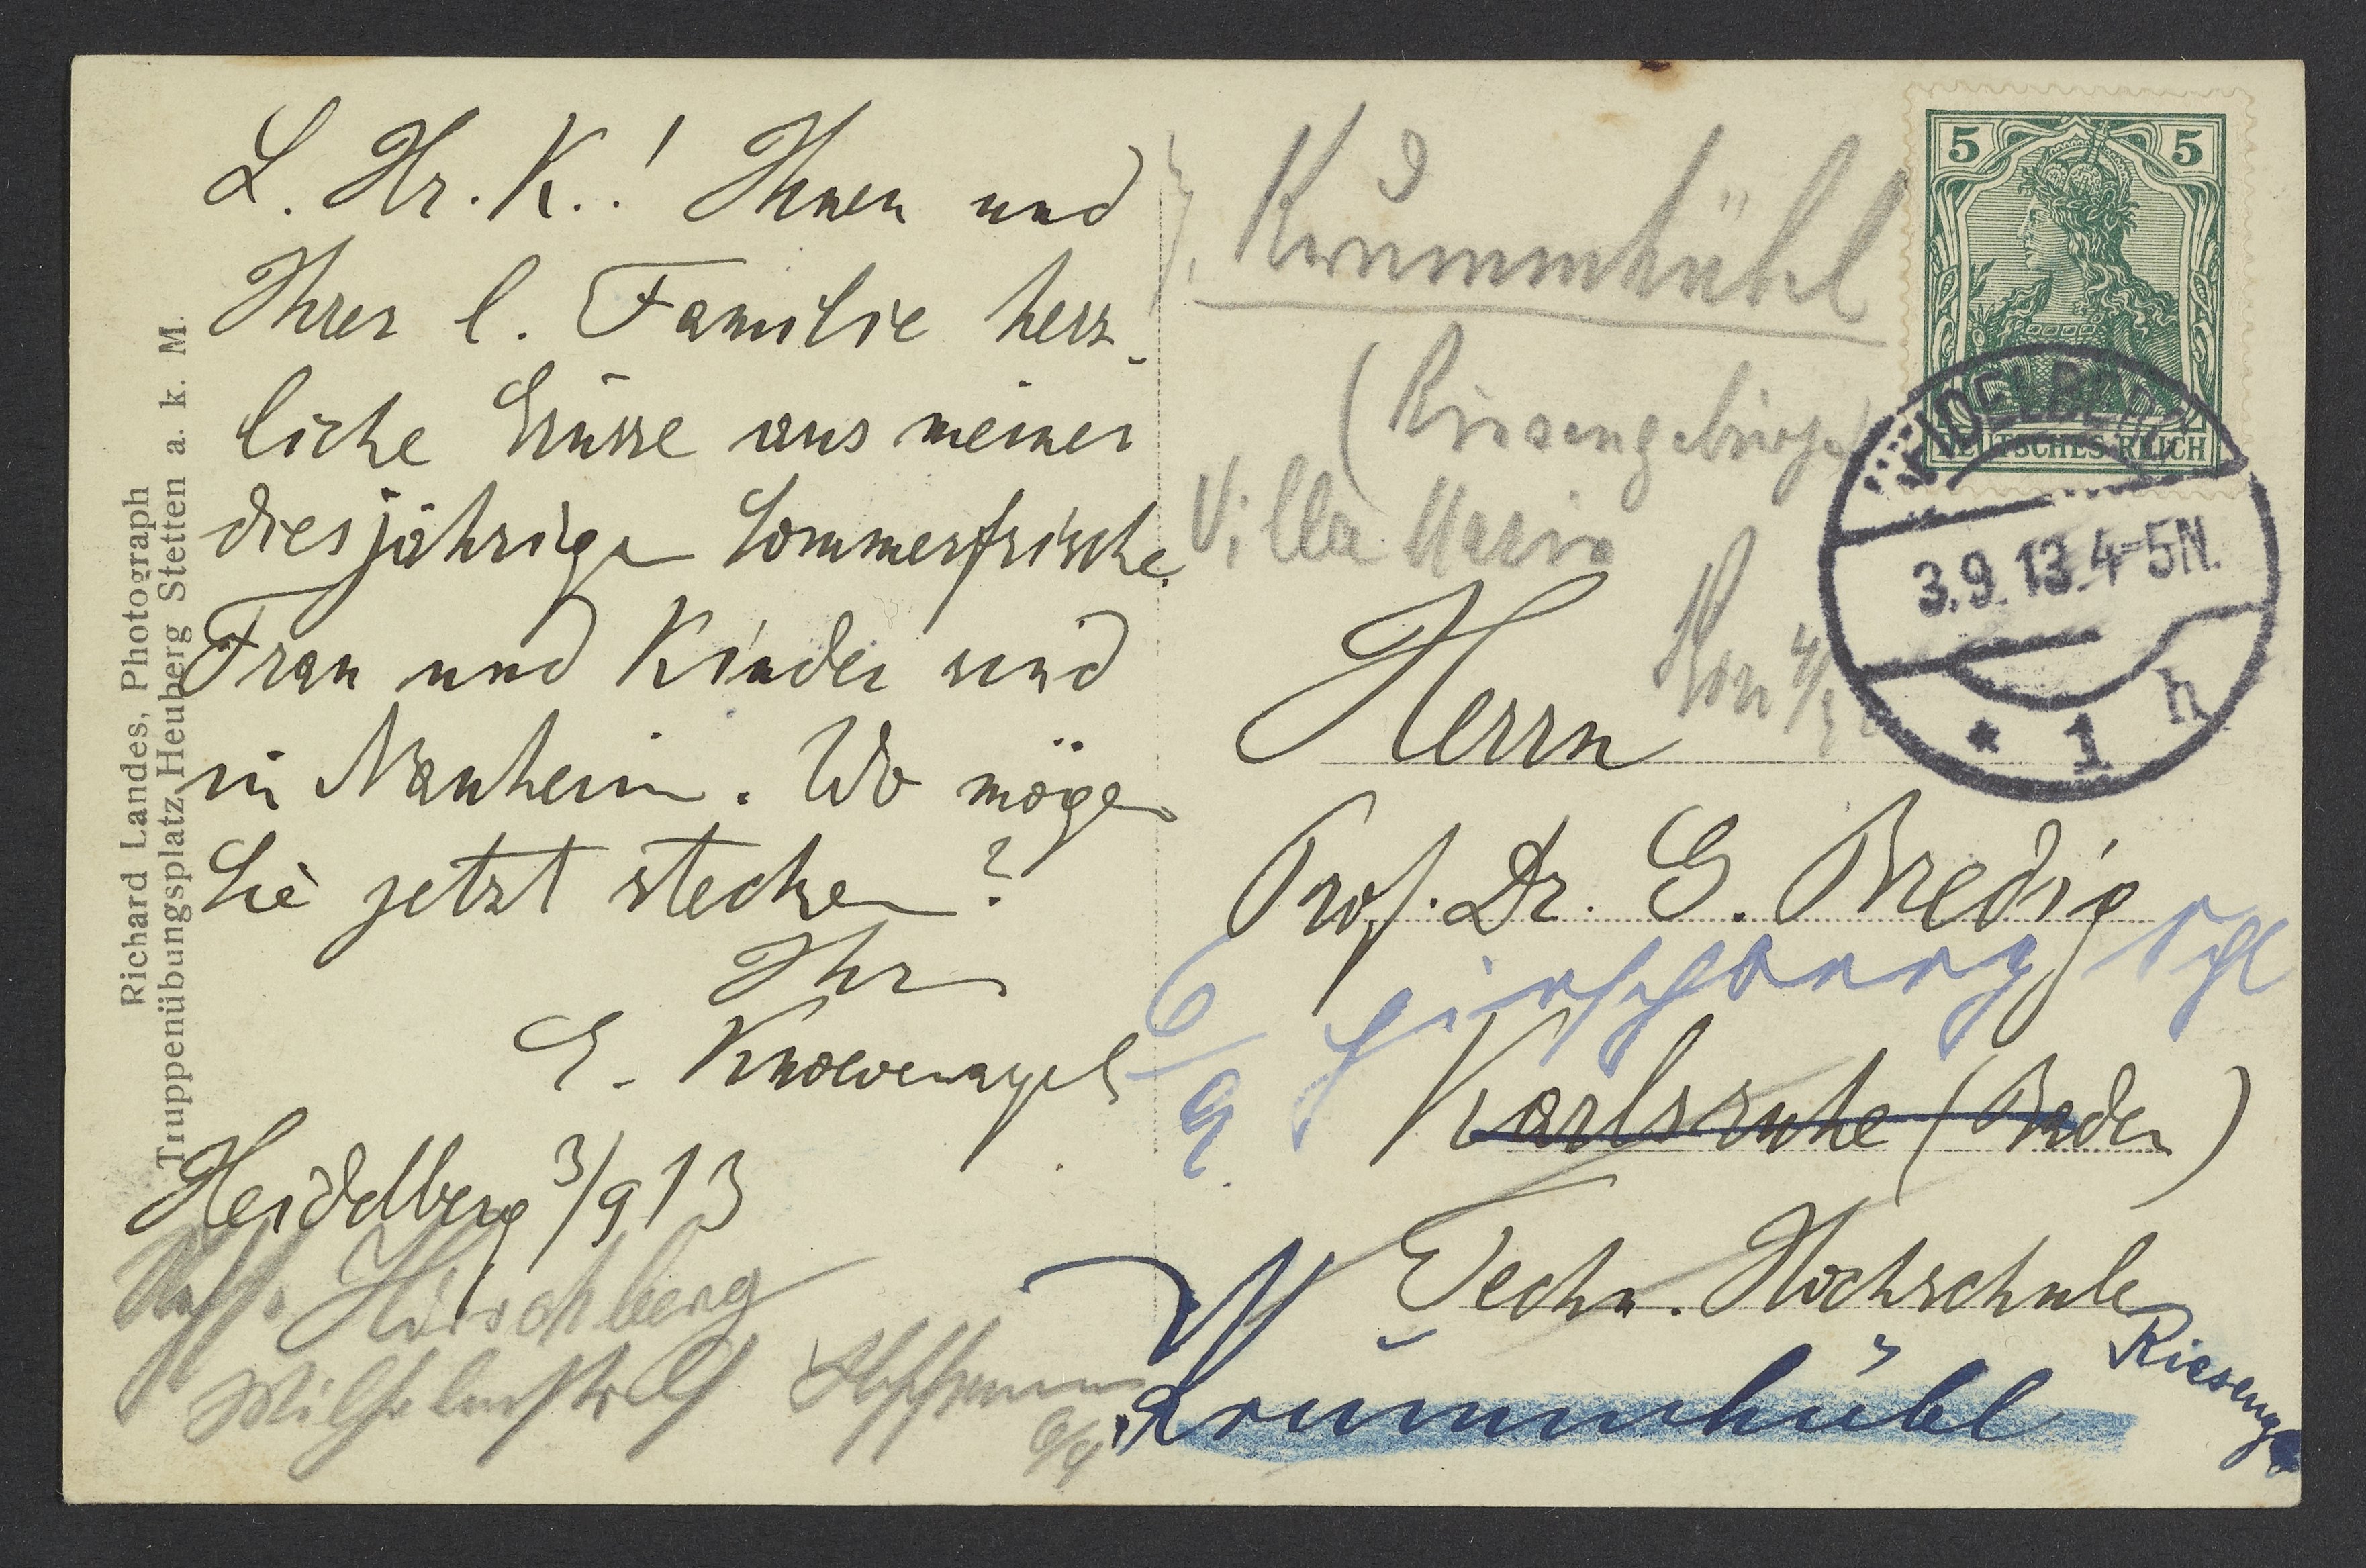 L. Hr. K.! Ihnen und
Ihrer l. Familie herz-
liche Grüsse aus meiner
diesjährigen Sommerfrische.
Frau und Kinder sind
in Nauheim. Wo mögen
Sie jetzt stecken?
Ihr
E. Knoevenagel
Heidelberg 3/9 13
Hirschberg
Wilhelmstr
Hoffmann
6/9
Richard Landes, Photograph
Truppenübungsplatz Heuberg Stetten a. k. M.
Krummhübel
(Riesengebirge)
Villa Maria
5 5
DEUTSCHES REICH
HEIDELBERG
3.9.13.4-5N.
* 1 h
Herrn
Prof. Dr. G. Bredig
6/9 Hirschberg Schl
Karlsruhe (Baden)
Techn. Hochschule
Krummhübel
Riesengb